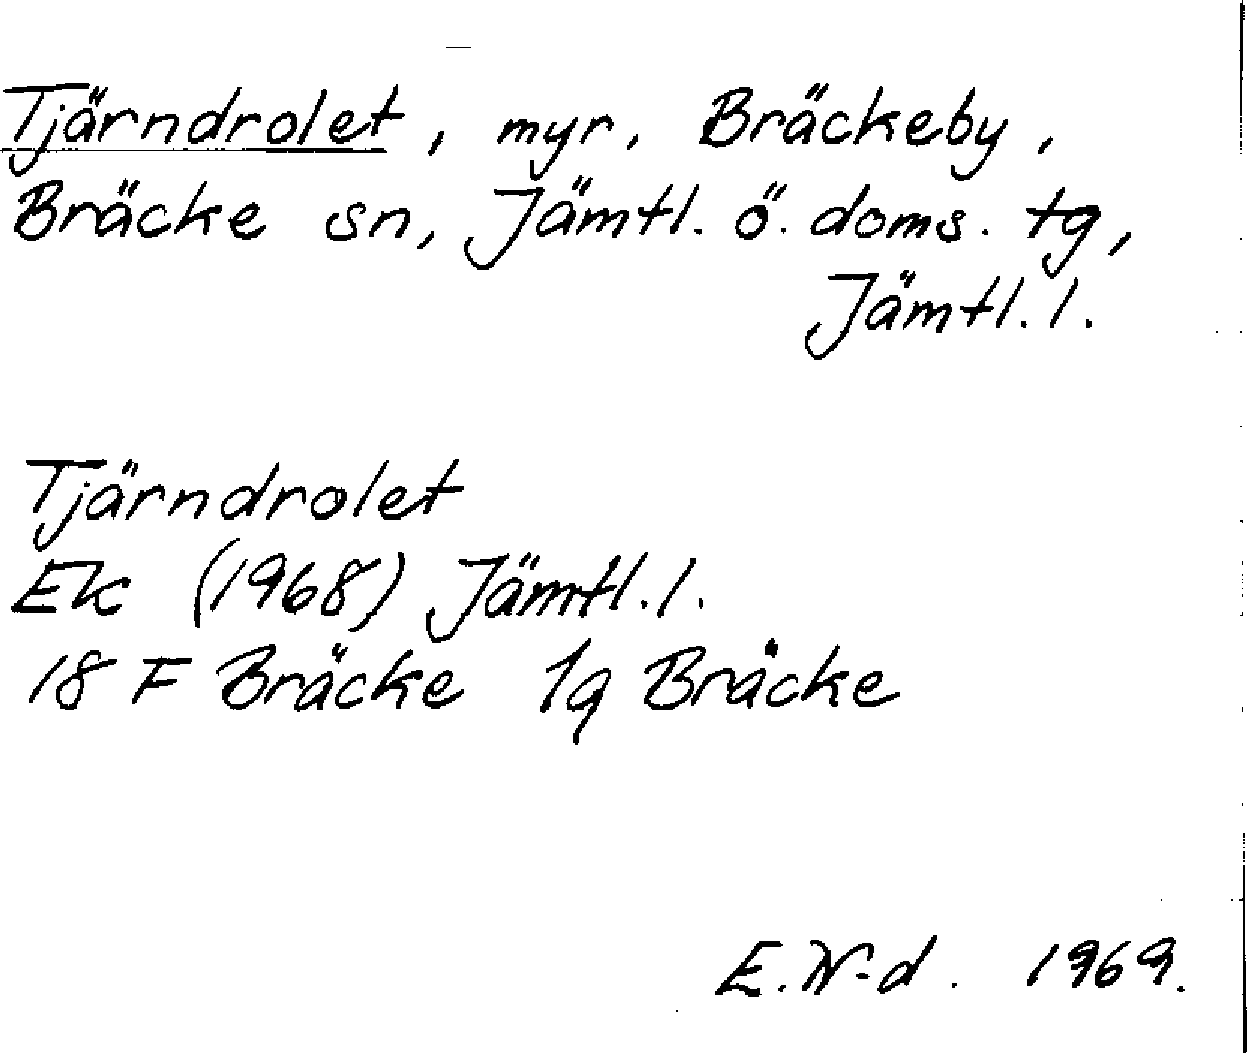 Tjärndrolet, myr, Bräckeby,
Bräcke sn, Jämtl. ö. doms. tg,
Jämtl. l.
Tjärndrolet
Ek (1968) Jämtl. l.
18 F Bräcke 1g Bräcke
E. W-d. 1969.